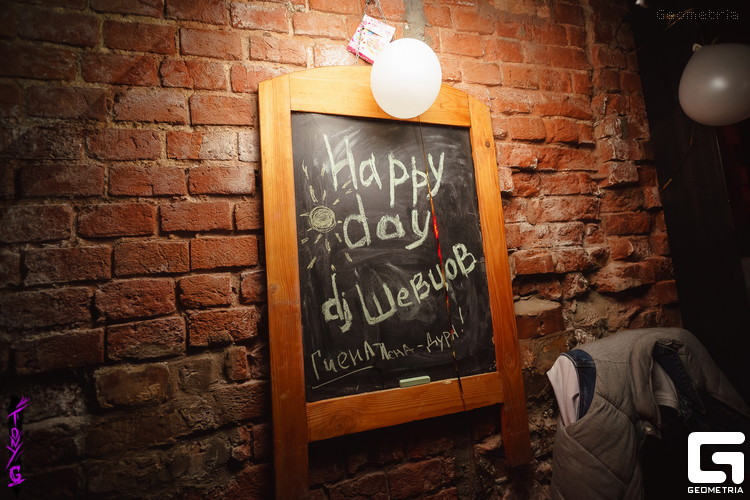 Geometria
Happy
day
dj Шевцов
Гиена Лена - дура!
G
GEOMETRIA